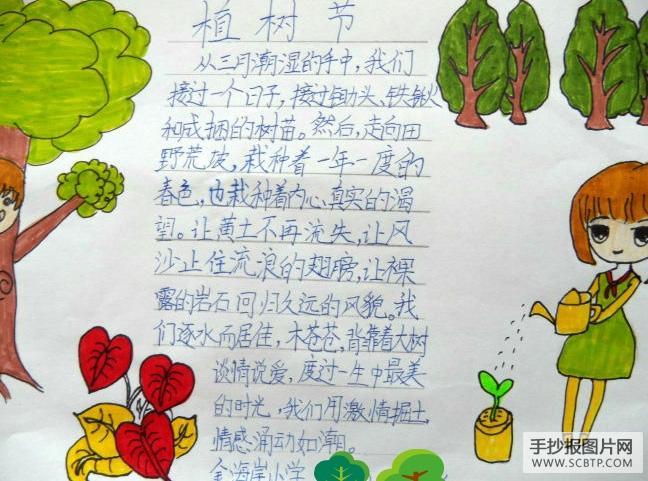 植树节
从三月潮湿的手中，我们
接过一个日子，接过锄头、铁锹
和成捆的树苗。然后，走向田
野荒坡，栽种着一年一度的
春色，也栽种着内心真实的渴
望。让黄土不再流失，让风
沙止住流浪的翅膀，让裸
露的岩石回归久远的风貌。我
们逐水而居住，木苍苍，背靠着大树
谈情说爱，度过一生中最美
的时光，我们用激情掘土，
情感涌动如潮。
金海岸小学
手抄报图片网
WWW.SCBTP.COM